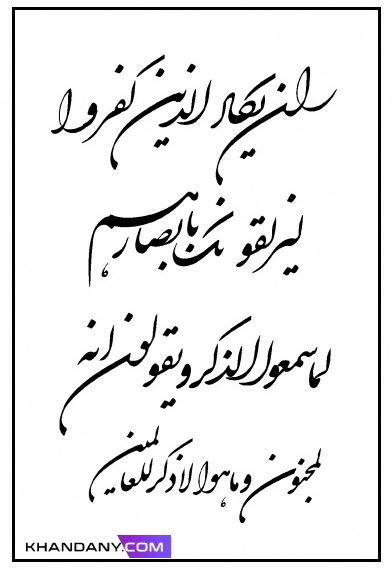 وان یکاد الذین کفروا
لیزلقونک بابصارهم
لما سمعوا الذکر و یقولون انه
لمجنون و ما هو الا ذکر للعالمین
KHANDANY.COM